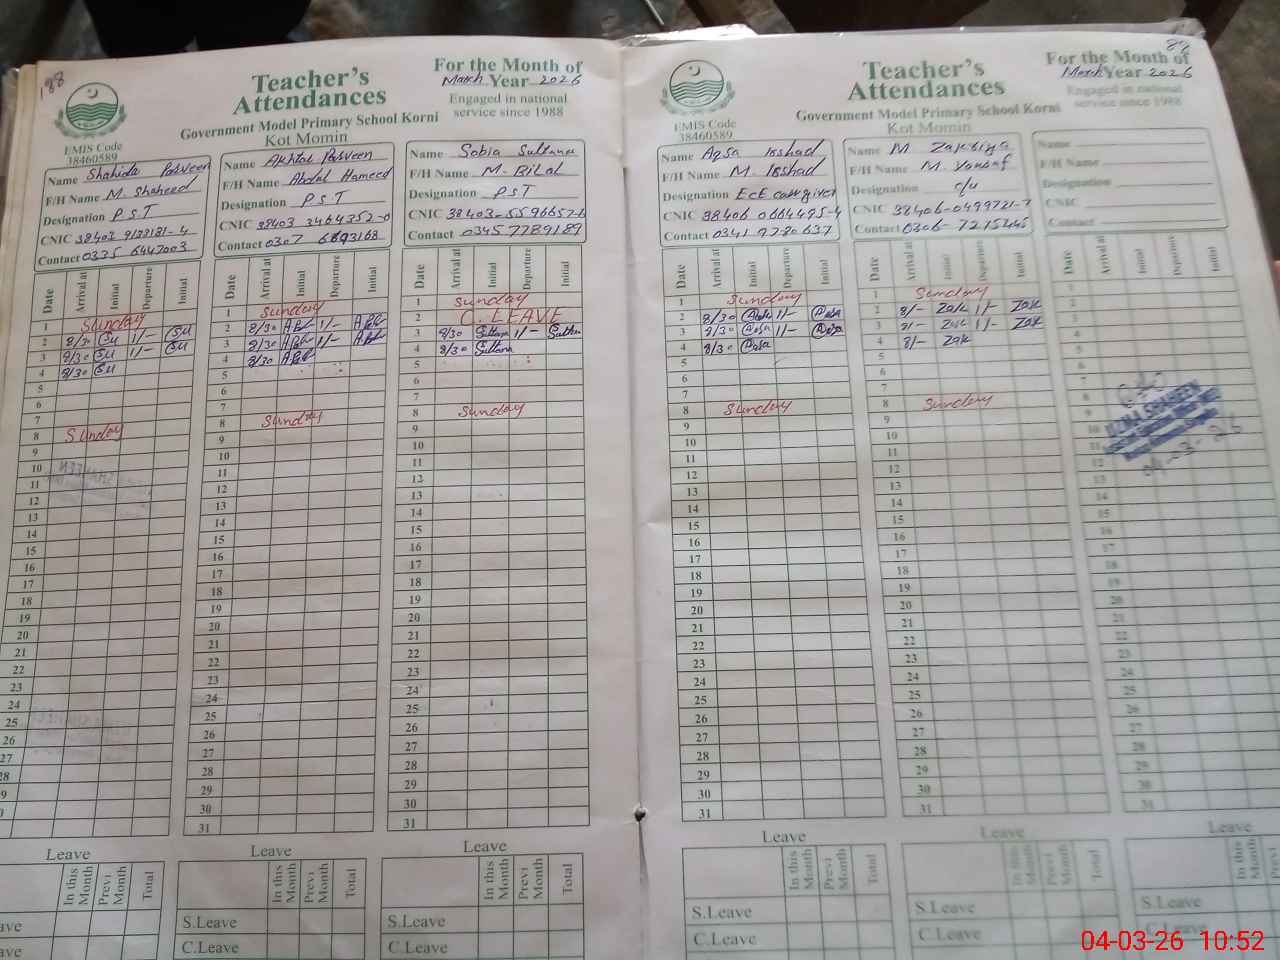 188
Teacher's
Attendances
For the Month of
March Year 2026
Engaged in national
service since 1988
Government Model Primary School Korni
Kot Momin
EMIS Code
38460589
Name Shahida Parveen
F/H Name M. Shaheed
Designation P.S.T
CNIC 38403 9138181-4
Contact 0335 6447003
Date Arrival at Initial Departure Initial
1 Sunday
2 8/30 SU 1/- SU
3 8/30 SU 1/- SU
4 8/30 SU
5
6
7
8 Sunday
9
10
11
12
13
14
15
16
17
18
19
20
21
22
23
24
25
26
27
28
29
30
Leave
In this Month Previ Month Total
Name Akhtar Parveen
F/H Name Abdul Hameed
Designation P.S.T
CNIC 38403 3464352-0
Contact 0307 6693168
Date Arrival at Initial Departure Initial
1 Sunday
2 8/30 1/-
3 8/30 1/-
4 8/30
5
6
7
8 Sunday
9
10
11
12
13
14
15
16
17
18
19
20
21
22
23
24
25
26
27
28
29
30
31
Leave
In this Month Previ Month Total
S.Leave
C.Leave
Name Sobia Sultana
F/H Name M. BILAL
Designation PST
CNIC 38403-5596657-6
Contact 03457789189
Date Arrival at Initial Departure Initial
1 Sunday
2 C. LEAVE
3 8/30 Sultana 1/- Sultana
4 8/30 Sultana
5
6
7
8 Sunday
9
10
11
12
13
14
15
16
17
18
19
20
21
22
23
24
25
26
27
28
29
30
31
Leave
In this Month Previ Month Total
S.Leave
C.Leave
89
Teacher's
Attendances
For the Month of
March Year 2026
Engaged in national
service since 1988
Government Model Primary School Korni
Kot Momin
EMIS Code
38460589
Name Aqsa Irshad
F/H Name M. Irshad
Designation EcE caregiver
CNIC 38406 0664495-4
Contact 0341 9780637
Date Arrival at Initial Departure Initial
1 Sunday
2 8/30 Aqsa 1/- Aqsa
3 8/30 Aqsa 1/- Aqsa
4 8/30 Aqsa
5
6
7
8 Sunday
9
10
11
12
13
14
15
16
17
18
19
20
21
22
23
24
25
26
27
28
29
30
31
Leave
In this Month Previ Month Total
S.Leave
C.Leave
Name M Zakriya
F/H Name M. Yousaf
Designation C/4
CNIC 38406-0499721-7
Contact 0306-7215445
Date Arrival at Initial Departure Initial
1 Sunday
2 8/- Zak 1/- Zak
3 8/- Zak 1/- Zak
4 8/- Zak
5
6
7
8 Sunday
9
10
11
12
13
14
15
16
17
18
19
20
21
22
23
24
25
26
27
28
29
30
31
Leave
In this Month Previ Month Total
S.Leave
C.Leave
Name
F/H Name
Designation
CNIC
Contact
Date Arrival at Initial Departure Initial
1
2
3
4
5
6
7
8
9
10
11
12
13
14
15
16
17
18
19
20
21
22
23
24
25
26
27
28
29
30
31
UZMA SHAHEEN
04-03-26
Leave
In this Month Previ
S.Leave
04-03-26 10:52